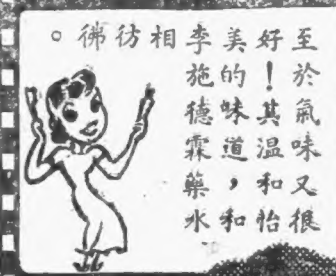 至於氣味又很
好！其温和怡
美的味道，和
李施德霖藥水
相彷彿。